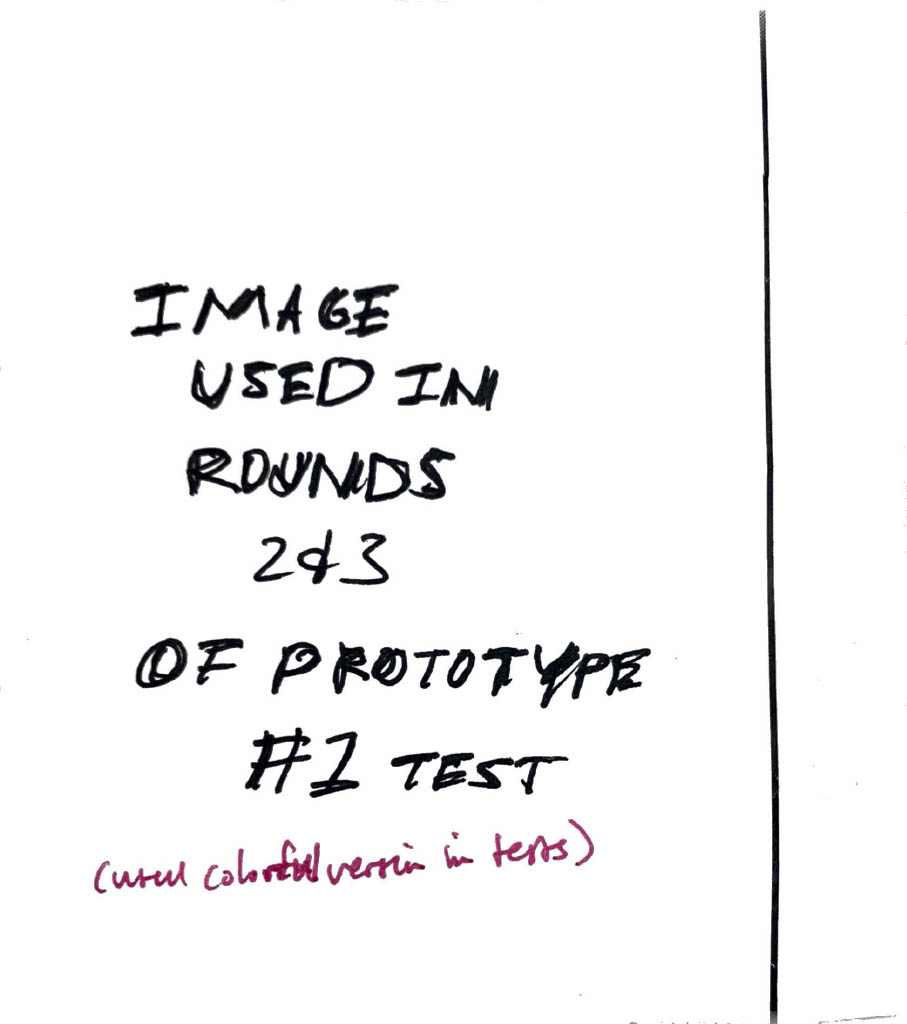 IMAGE
USED IN
ROUNDS
2&3
OF PROTOTYPE
#1 TEST
(used colorful version in tests)